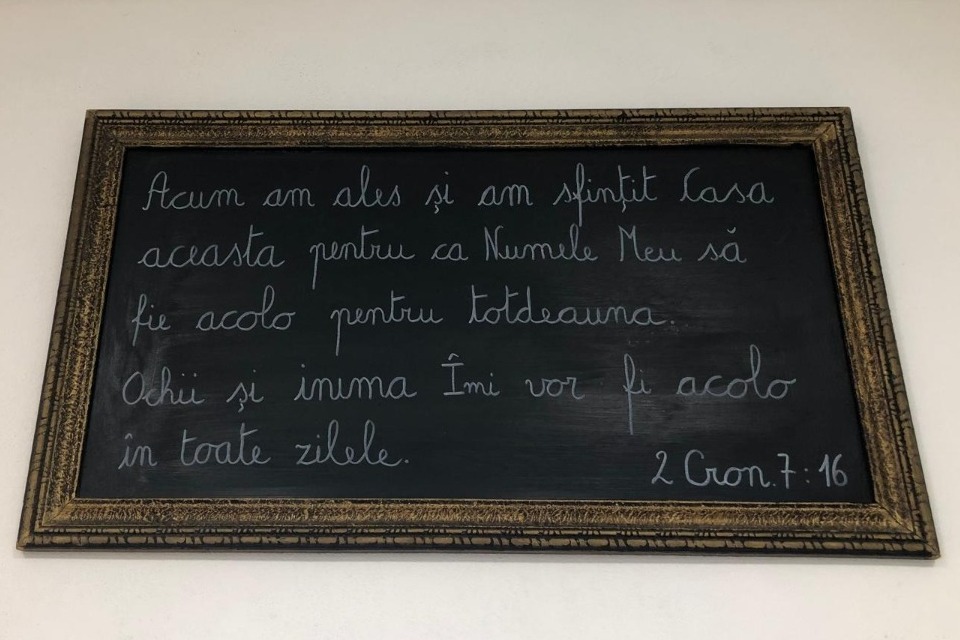 Acum am ales și am sfințit Casa
aceasta pentru ca Numele Meu să
fie acolo pentru totdeauna.
Ochii și inima Îmi vor fi acolo
în toate zilele.
2 Cron. 7:16